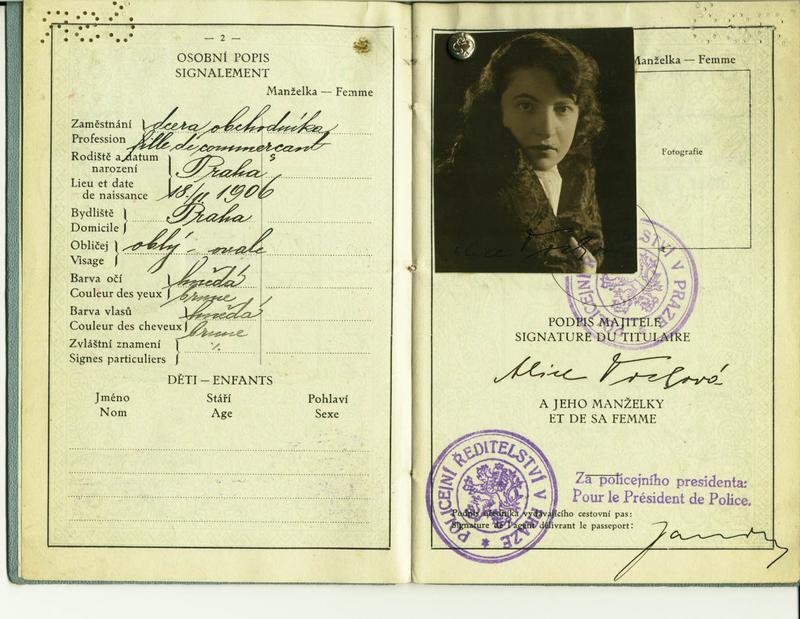 — 2 —
OSOBNÍ POPIS
SIGNALEMENT
Manželka — Femme
Zaměstnání dcera obchodníka
Profession fille de commercant
Rodiště a datum
narození Praha
Lieu et date
de naissance 18./II 1906
Bydliště Praha
Domicile
Obličej oblý - ovale
Visage
Barva očí hnědá
Couleur des yeux brune
Barva vlasů hnědá
Couleur des cheveux brune
Zvláštní znamení
Signes particuliers
DĚTI — ENFANTS
Jméno Stáří Pohlaví
Nom Age Sexe
Manželka — Femme
Fotografie
POLICEJNÍ ŘEDITELSTVÍ V PRAZE
PODPIS MAJITELE
SIGNATURE DU TITULAIRE
Alice
A JEHO MANŽELKY
ET DE SA FEMME
POLICEJNÍ ŘEDITELSTVÍ V PRAZE
Za policejního presidenta:
Pour le Président de Police.
Podpis úředníka vydávajícího cestovní pas:
Signature de l'agent délivrant le passeport: